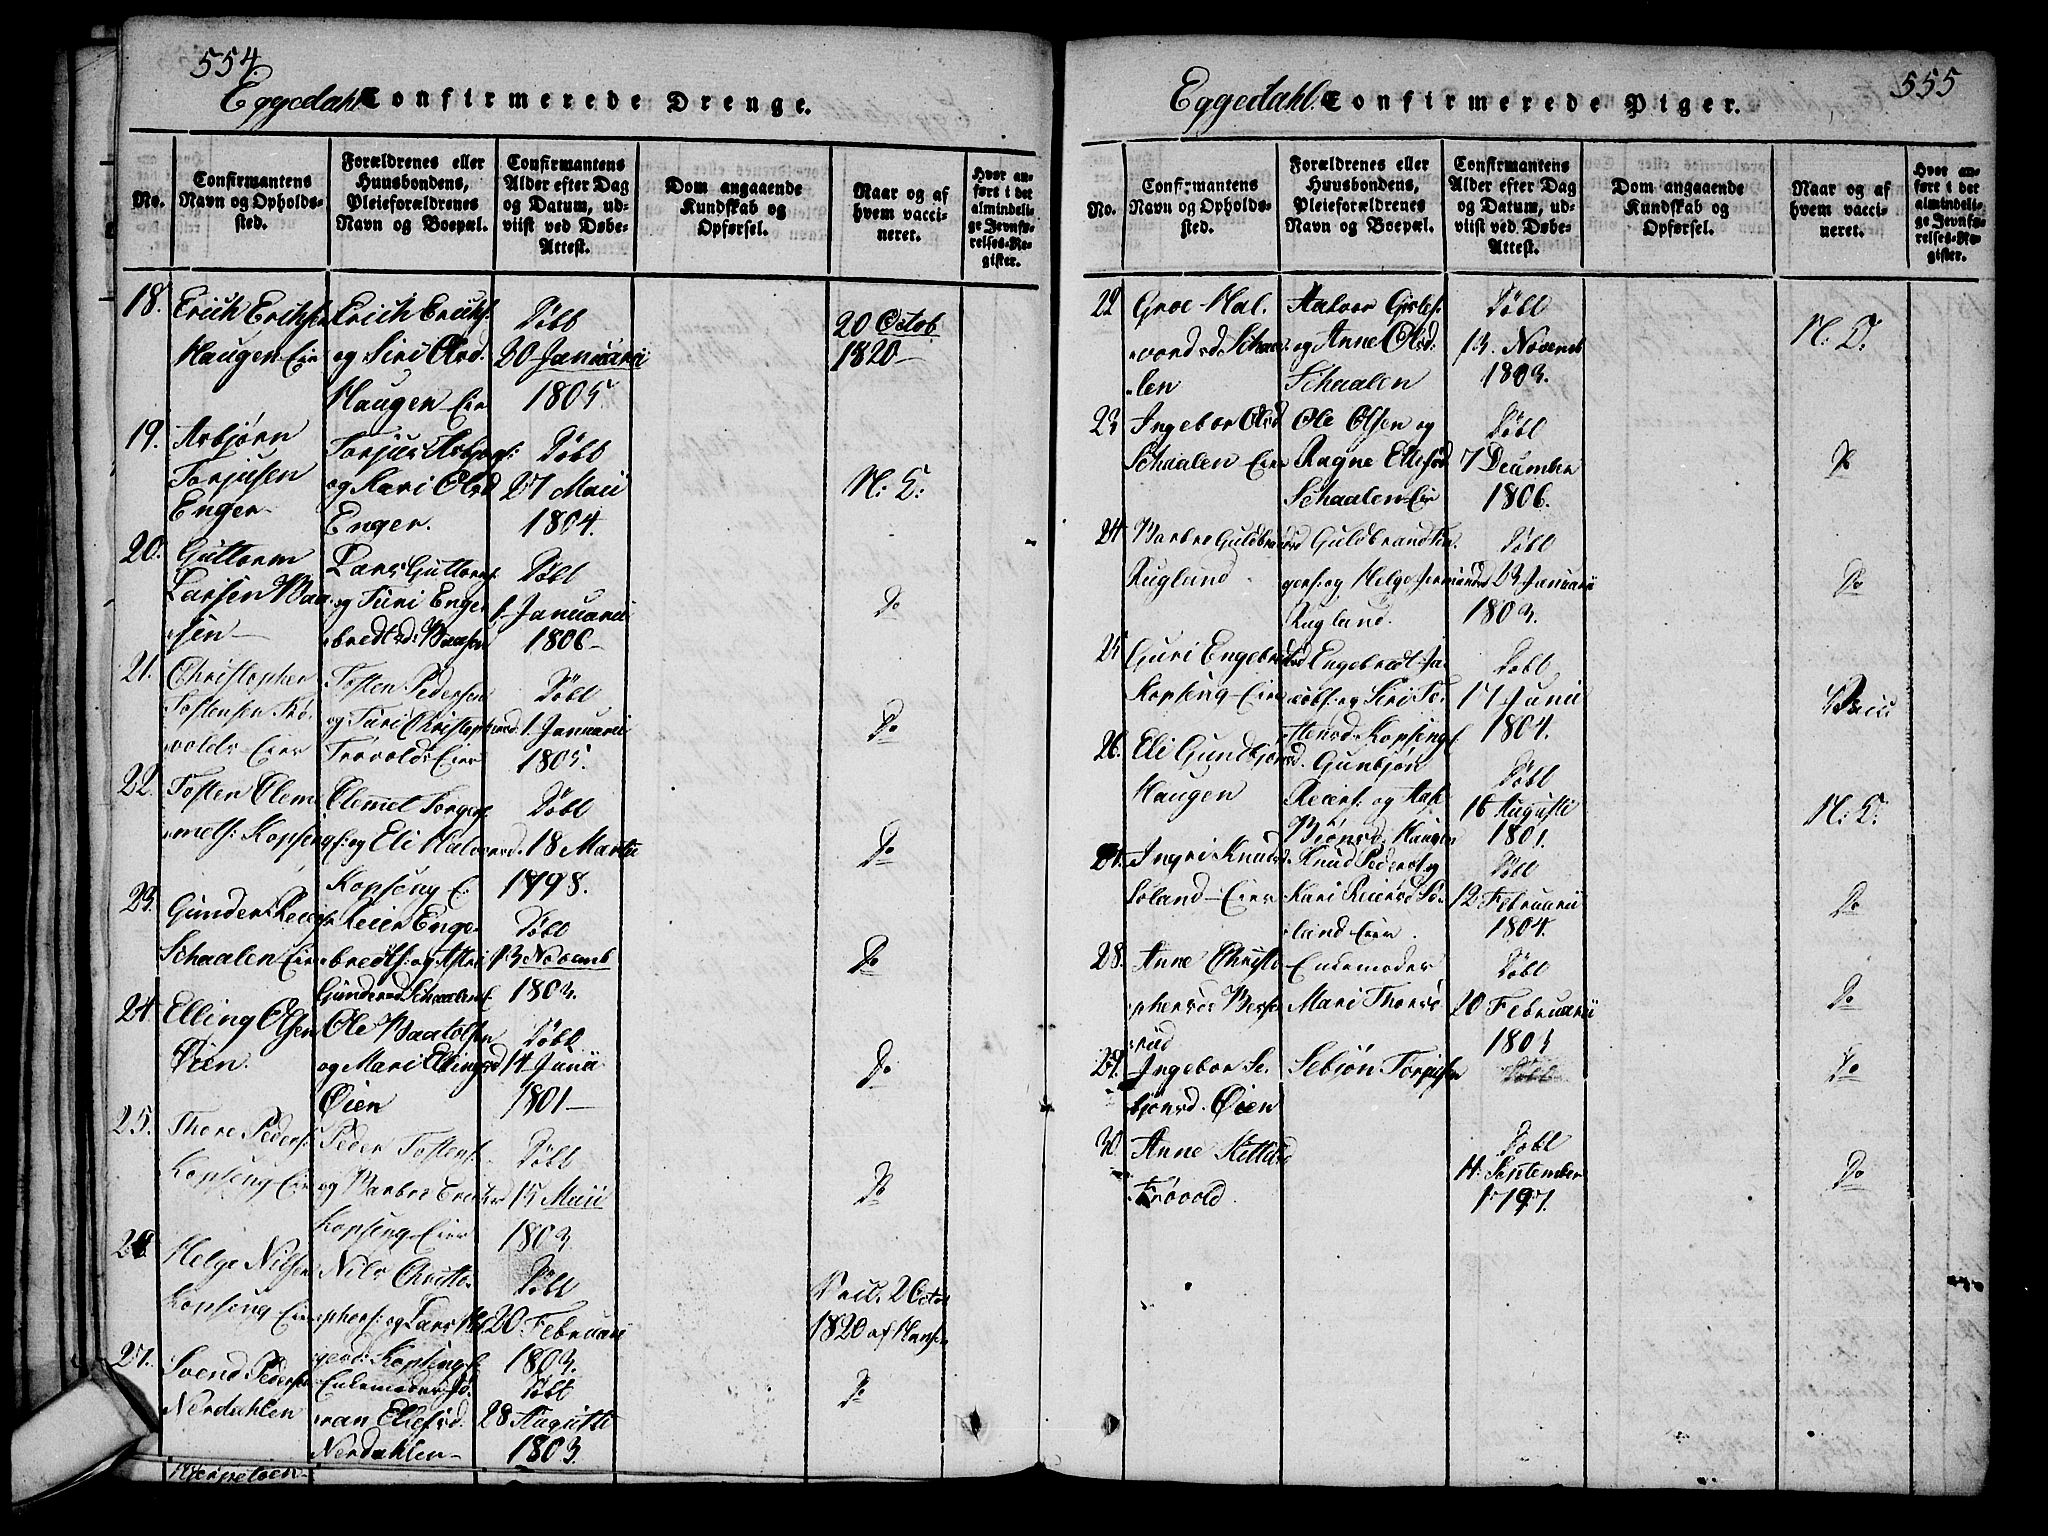 554.
Eggedahl Confirmerede Drenge.
No.
Confirmantens
Navn og Opholds-
sted.
Forældrenes eller
Huusbondens,
Pleieforældrenes
Navn og Boepæl.
Confirmantens
Alder efter Dag
og Datum, ud-
viist ved Døbe-
Attest.
Dom angaaende
Kundskab og
Opførsel.
Naar og af
hvem vacci-
neret.
Hvor an-
ført i det
almindeli-
ge Jevnfø-
relses-Re-
gister.
18.
Erich Erichsen
Haugen Eie
Erich Erichs.
og Siri Olsd.
Haugen Eie
Døbt
20 Januarii
1805
20 Octob
1820
19.
Asbjørn
Torjusen
Enger
Torjus Asbjøns:
og Kari Olsd
Enger.
Døbt
27 Maii
1804.
N: D:
20.
Guttorm
Larsen Baa
sen
Lars Guttorms.
og Turi Enge
bredtsd: Baasen
Døbt
1. Januarii
1806
Do
21.
Christopher
Tostensen Trø
volds Eier
Tosten Pedersen
og Turi Christophersd.
Trøvolds Eier
Døbt
1 Januarii
1805.
Do
22.
Tosten Clem
mets: Kopseng
Clemmet Torgers
og Eli Halvorsd.
Kopseng E.
Døbt
18 Martii
1798.
Do
23.
Gunder Reiers
Schaalen Eier
Reier Enge
bredts: og Astri
Gundersd Schaalens
Døbt
13 Novemb
1803.
Do
24
Elling Olsen
Øien.
Ole Baatolsen
og Mari Ellingsd
Øien
Døbt
14 Junii
1801
Do
25.
Thore Peders:
Kopseng Eie
Peder Tostens.
og Barbro Erichsd
Kopseng Eier
Døbt
15 Maii
1803
Do
26.
Helge Nilsen
Kopseng Eie
Nils Christo
phers: og Lars Hel
gesd: Kopsengs.
Døbt
20. Februarii
1803.
Vacc. 2 Octob
1820 af Hansen
27.
Svend Peders
Nerdahlen
Enkemoder Jø
ran Ellefsd.
Nerdahlen
Døbt
28 Augusti
1803.
Do
555
Eggedahl. Confirmerede Piger.
No.
Confirmantens
Navn og Opholds-
sted.
Forældrenes eller
Huusbondens,
Pleieforældrenes
Navn og Boepæl.
Confirmantens
Alder efter Dag
og Datum, ud-
viist ved Døbe-
Attest.
Dom angaaende
Kundskab og
Opførsel.
Naar og af
hvem vacci-
neret.
Hvor an-
ført i det
almindeli-
ge Jevnfø-
relses-Re-
gister.
22
Groe Hal.
vordsd. Schaa
len
Halvor Gisles:
og Anne Olsd:
Schaalen
Døbt
13. Novemb
1803.
N: D:
23
Ingebor Olsd
Schaalen Eier
Ole Olsen og
Ragne Ellefsd
Schaalen Eie
Døbt
7 December
1806.
Do
24
Barbro Guldbrandsd
Rugland
Guldbrand
gers: og Helge
Rugland.
Døbt
23 Januarii
1803.
Do
25
Guri Engebretsd
Kopseng Eier
Engebredt Ja
cobs: og Siri To
stensd. Kopsengs.
Døbt
17 Junii
1804.
Vacc
26.
Eli Gundbjønsd.
Haugen
Gunbjøn
Reiers: og Aas
Biønsd. Haugen
Døbt
16 Augusti
1801.
N: D:
27.
Ingri Knudsd
Soland Eier
Knud Peders og
Kari Reiersd So
land Eier.
Døbt
12 Februarii
1804.
Do
28.
Anne Christo
phersd Besse
rud
Enkemoder
Mari Thorsd
Døbt
20 Februarii
1803
Do
29.
Ingebor Se
bjønsd. Øien
Sebjøn Torjusen
Døbt
Do
30.
Anne Kittilsd
Trøvold.
Døbt
14. September
1797.
Do